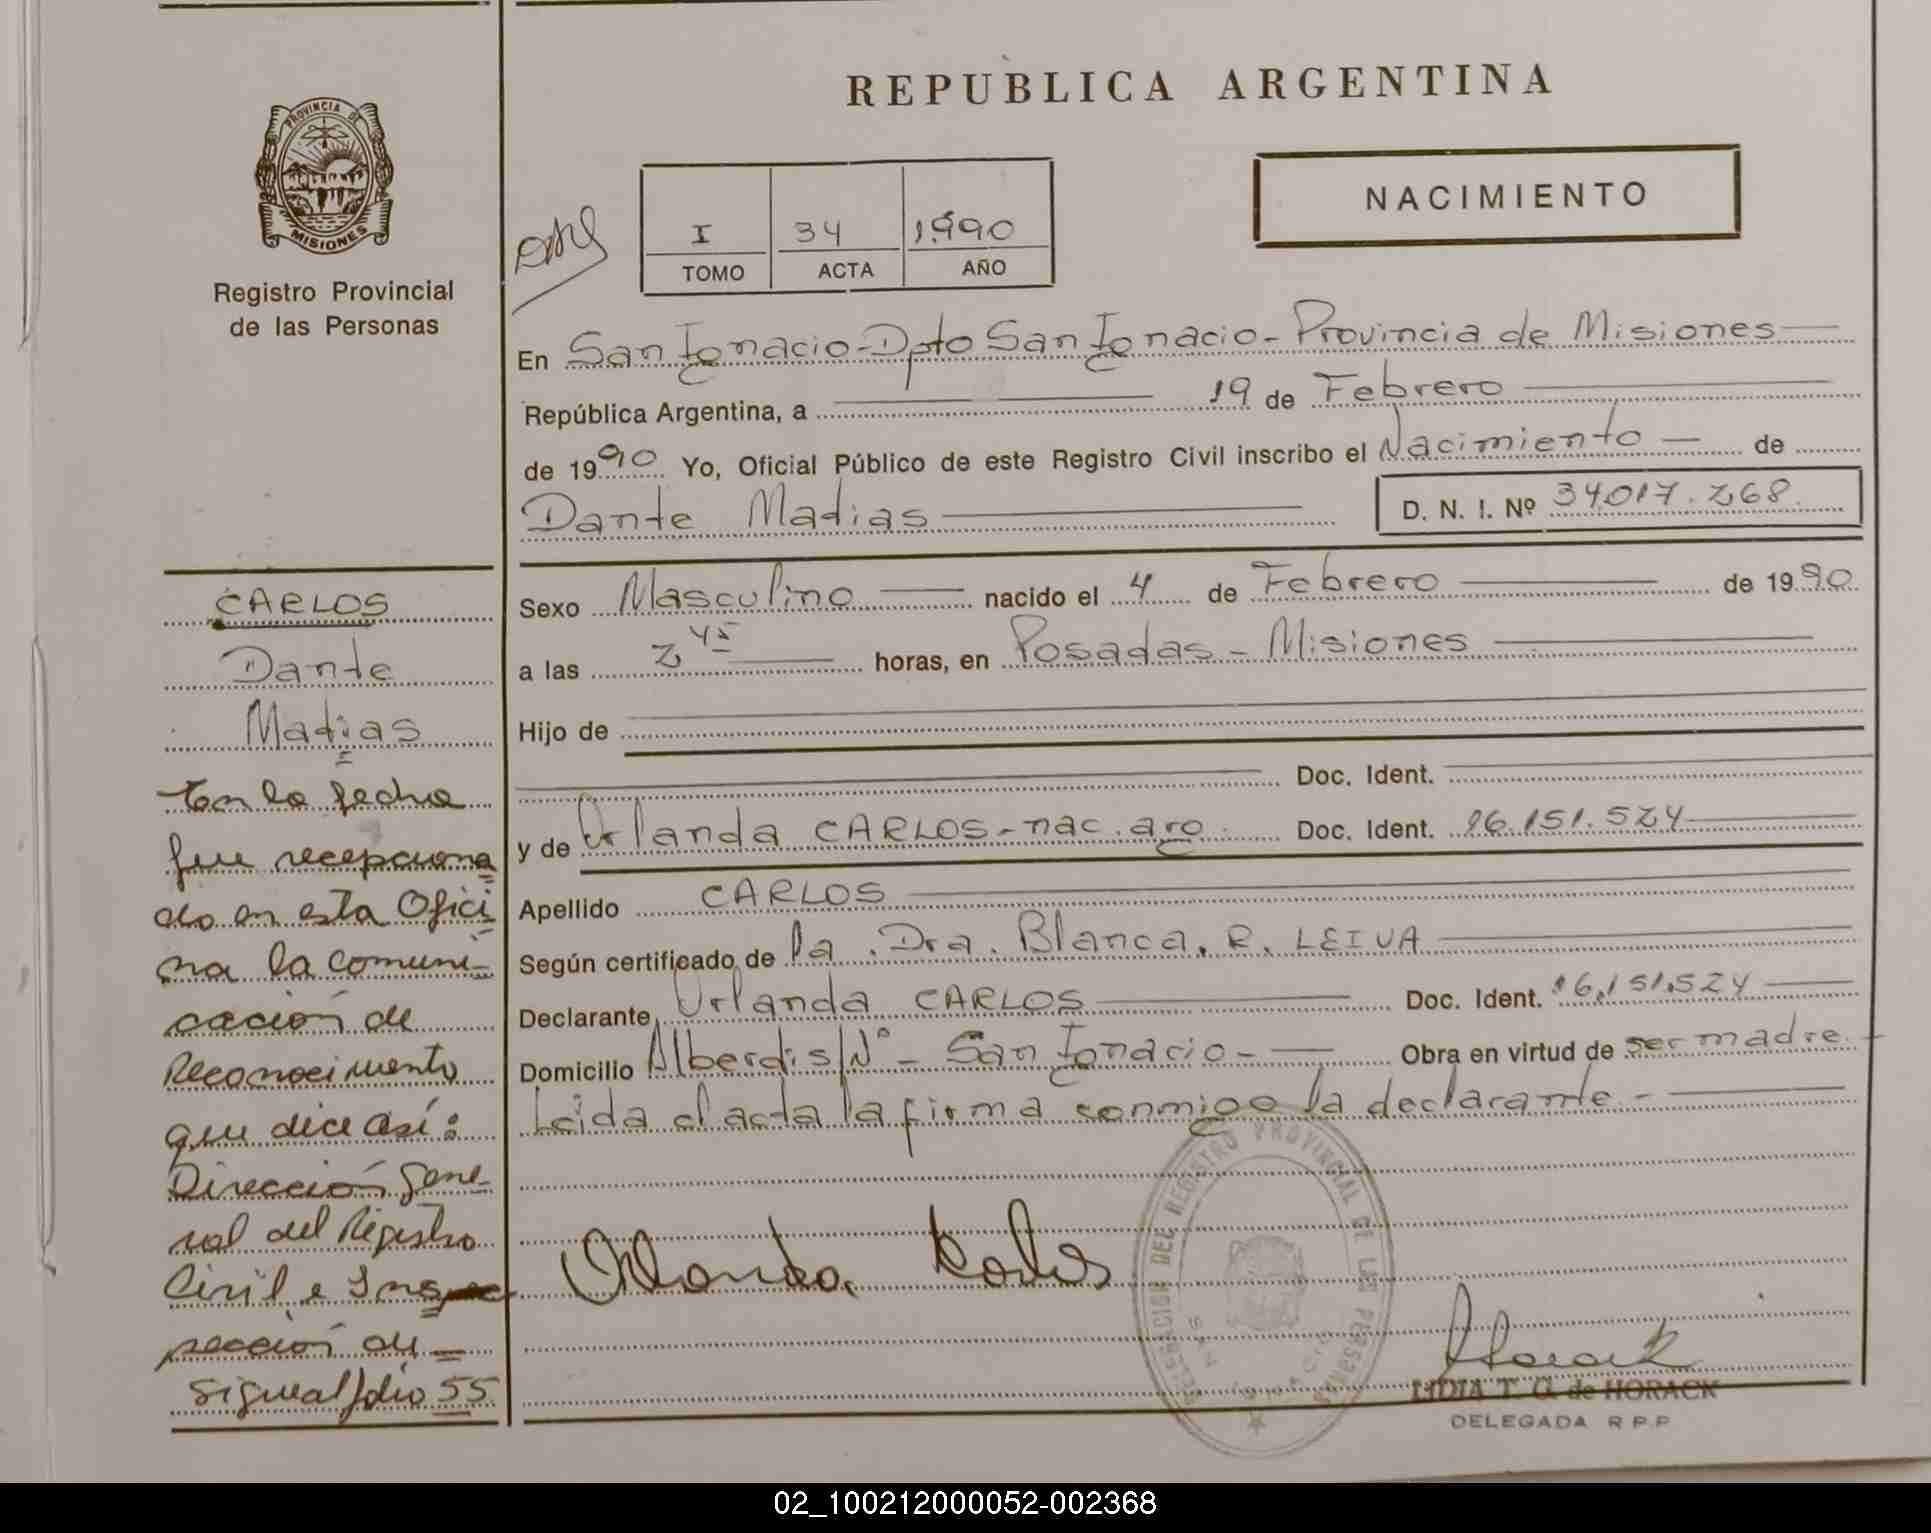 PROVINCIA DE
MISIONES
Registro Provincial
de las Personas
CARLOS
Dante
Matias
En la fecha
fue recepciona
do en esta Ofici
na la comuni-
cación de
Reconocimiento
que dice así:
Dirección Gene-
ral del Registro
Civil e Ins
pección de
Sigue al folio 55
REPUBLICA ARGENTINA
NACIMIENTO
I 34 1.990
TOMO ACTA AÑO
En San Ignacio - Dpto San Ignacio - Provincia de Misiones
República Argentina, a 19 de Febrero
de 1990 Yo, Oficial Público de este Registro Civil inscribo el Nacimiento - de
Dante Matias D. N. I. Nº 34.017.268.
Sexo Masculino nacido el 4 de Febrero de 1990
a las 2 45 horas, en Posadas - Misiones
Hijo de
Doc. Ident.
y de Urlanda CARLOS - nac. arg. Doc. Ident. 16.151.524
Apellido CARLOS
Según certificado de la Dra. Blanca. R. LEIVA
Declarante Urlanda CARLOS Doc. Ident. 16.151.524
Domicilio Alberdi s/Nº - San Ignacio - Obra en virtud de ser madre -
Leida el acta la firma conmigo la declarante -
DELEGACION DEL REGISTRO PROVINCIAL DE LAS PERSONAS
SAN IGNACIO
Horack
LIDIA T. G. de HORACK
DELEGADA R P P
02_100212000052-002368